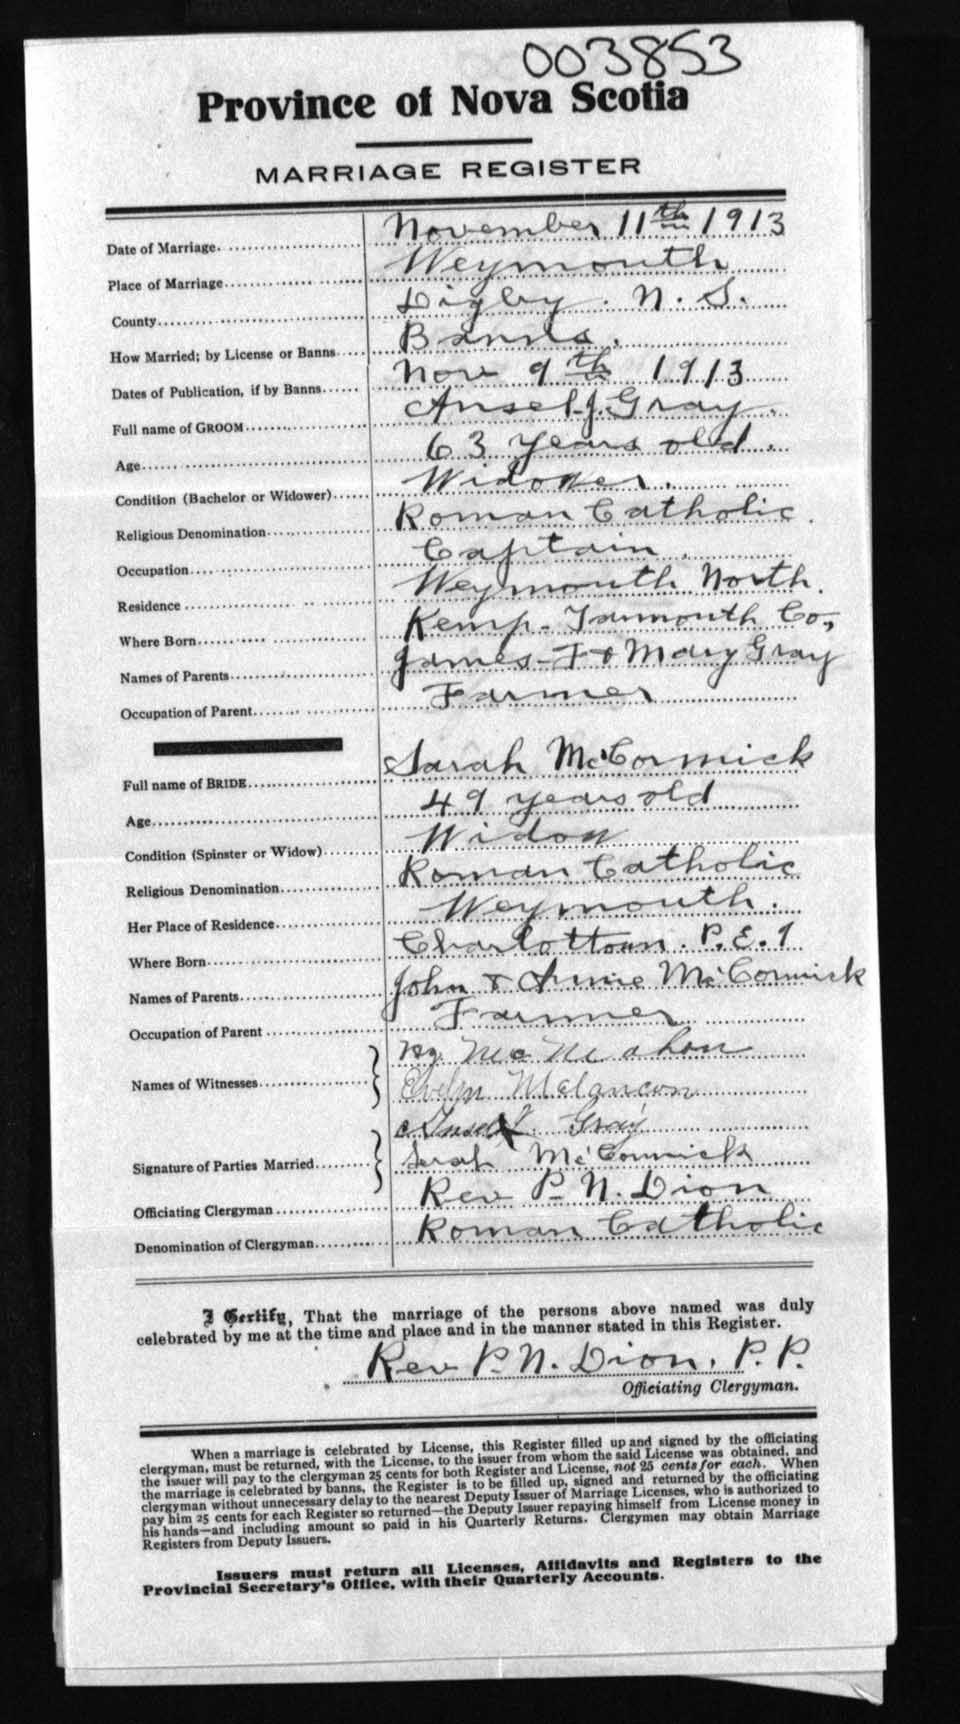 003853
Province of Nova Scotia
MARRIAGE REGISTER
Date of Marriage. November 11th 1913
Place of Marriage Weymouth
County Digby. N. S.
How Married; by License or Banns Banns.
Dates of Publication, if by Banns Nov 9th 1913
Full name of GROOM Ansel J. Gray.
Age 63 years old.
Condition (Bachelor or Widower) Widower.
Religious Denomination Roman Catholic.
Occupation Captain.
Residence Weymouth North.
Where Born Kemp- Yarmouth Co,
Names of Parents James F & Mary Gray
Occupation of Parent Farmer
Full name of BRIDE Sarah McCormick
Age 49 years old
Condition (Spinster or Widow) Widow
Religious Denomination Roman Catholic
Her Place of Residence Weymouth.
Where Born Charlottown. P.E.I
Names of Parents John & Annie McCormick
Occupation of Parent Farmer
Names of Witnesses McMahon
Evelyn Melancon
Gray
Signature of Parties Married Sarah McCormick
Officiating Clergyman Rev P. N. Dion
Denomination of Clergyman Roman Catholic
I Certify, That the marriage of the persons above named was duly
celebrated by me at the time and place and in the manner stated in this Register.
Rev P. N. Dion, P. P.
Officiating Clergyman.
When a marriage is celebrated by License, this Register filled up and signed by the officiating
clergyman, must be returned, with the License, to the issuer from whom the said License was obtained, and
the issuer will pay to the clergyman 25 cents for both Register and License, not 25 cents for each. When
the marriage is celebrated by banns, the Register is to be filled up, signed and returned by the officiating
clergyman without unnecessary delay to the nearest Deputy Issuer of Marriage Licenses, who is authorized to
pay him 25 cents for each Register so returned—the Deputy Issuer repaying himself from License money in
his hands—and including amount so paid in his Quarterly Returns. Clergymen may obtain Marriage
Registers from Deputy Issuers.
Issuers must return all Licenses, Affidavits and Registers to the
Provincial Secretary's Office, with their Quarterly Accounts.